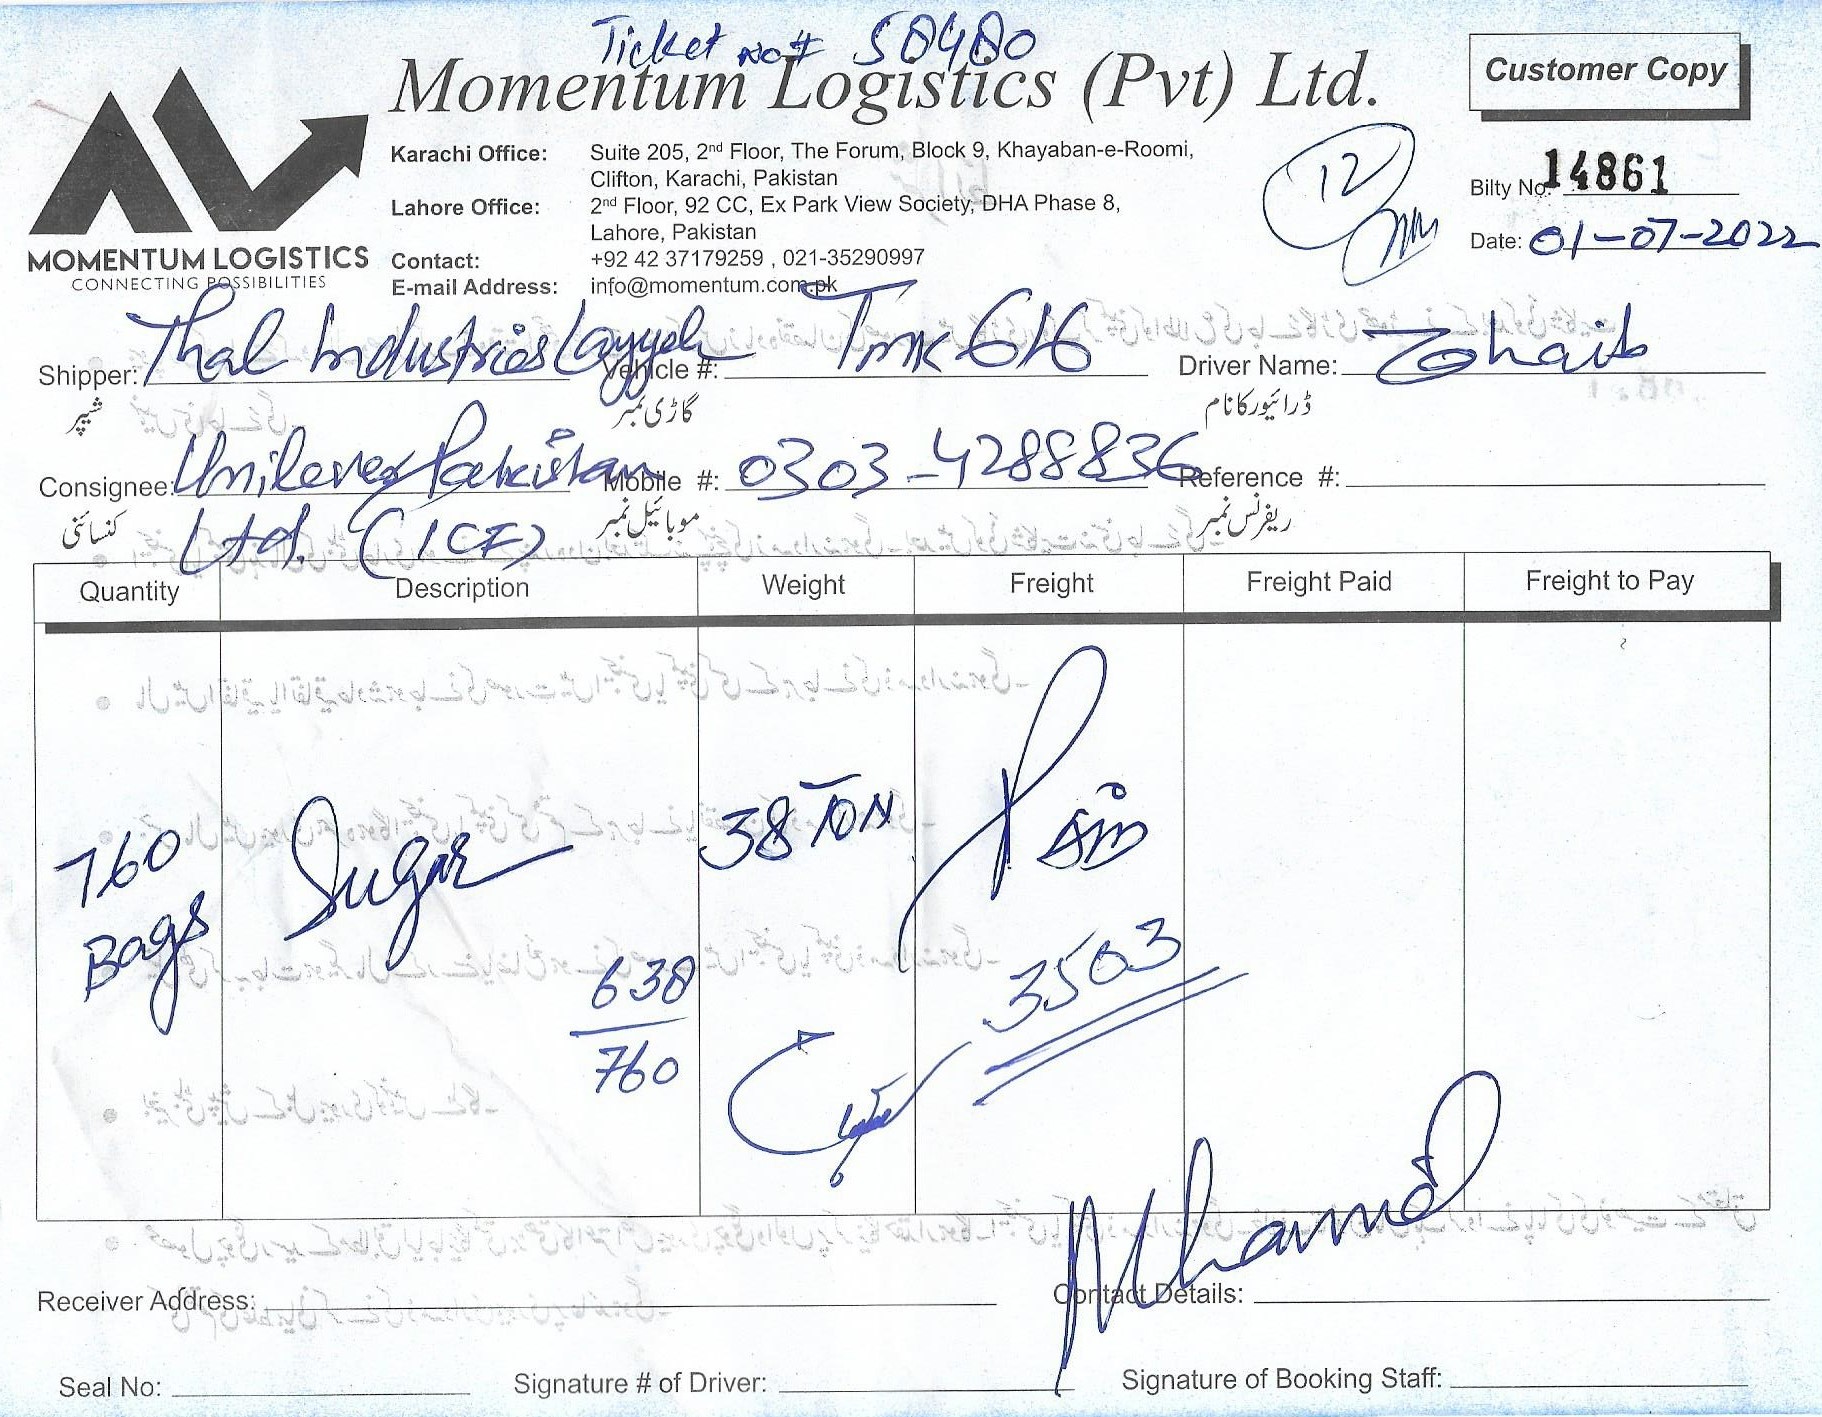 Ticket No# 58480
Momentum Logistics (Pvt) Ltd.
Customer Copy
MOMENTUM LOGISTICS
CONNECTING POSSIBILITIES
Karachi Office: Suite 205, 2nd Floor, The Forum, Block 9, Khayaban-e-Roomi,
Clifton, Karachi, Pakistan
Lahore Office: 2nd Floor, 92 CC, Ex Park View Society, DHA Phase 8,
Lahore, Pakistan
Contact: +92 42 37179259 , 021-35290997
E-mail Address: info@momentum.com.pk
12
Bilty No. 14861
Date: 01-07-2022
Shipper: Thal Industries Layyah Vehicle #: TMK 616 Driver Name: Zohaib
شیپر گاڑی نمبر ڈرائیور کا نام
Consignee: Unilever Pakistan Mobile #: 0303-4288836 Reference #:
Ltd. (ICF)
کنسائنی موبائیل نمبر ریفرنس نمبر
Quantity Description Weight Freight Freight Paid Freight to Pay
760 Bags Sugar 38 TON
638
760
3503
Receiver Address: Contact Details:
Seal No: Signature # of Driver: Signature of Booking Staff: